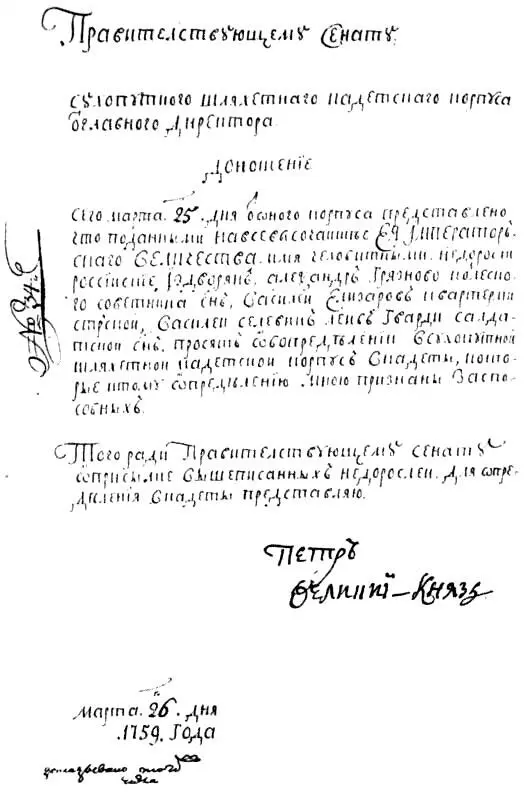 Правителствующему Сенату
Сухопутного шляхетнаго кадетскаго корпуса
Ѿ главного Директора
Доношение
Сего марта 25. дня ѿ оного корпуса представлено
что поданными на всевысочайшее ЕЯ Императоръ
скаго Величества имя челобитными, недоросли
россииские, Издворянъ, александръ Грязново колеско
го советника снъ, Василеи Елизаровъ квартерми
стрской, Василеи селевинъ леибъ Гварди салда
тской снъ, просятъ ѿбопредѣлении Всухопутной
шляхетной кадетской корпусъ Вкадеты, кото
рые ктому ѿпредѣлению Мною признаны Заспо
собныхъ.
Того ради Правителствующему сенату
ѿприсылке вышеписанныхъ недорослеи, для ѿпре
дѣления Вкадеты представляю.
Петръ
Великиї - Князь
№ 34.
марта. 26. дня
1759. года